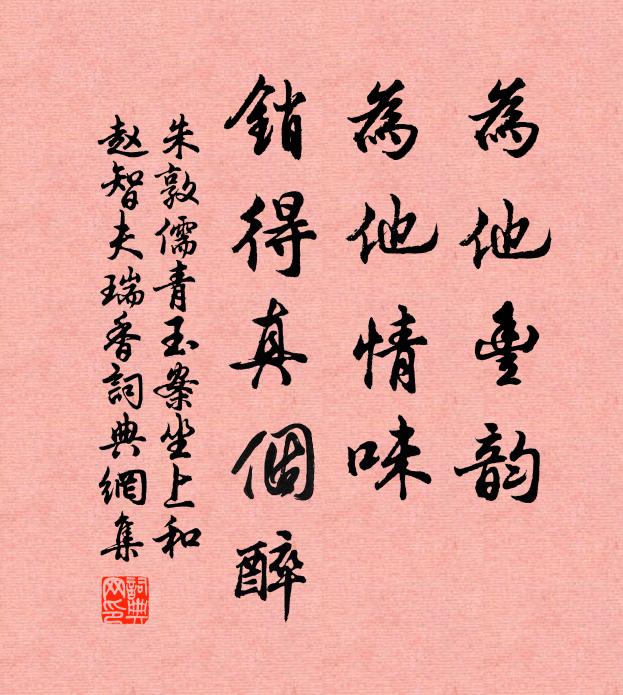 為他豐韵
為他情味
銷得真個醉
朱敦儒青玉案坐上和
赵智夫瑞香詞典網集
詞典網印